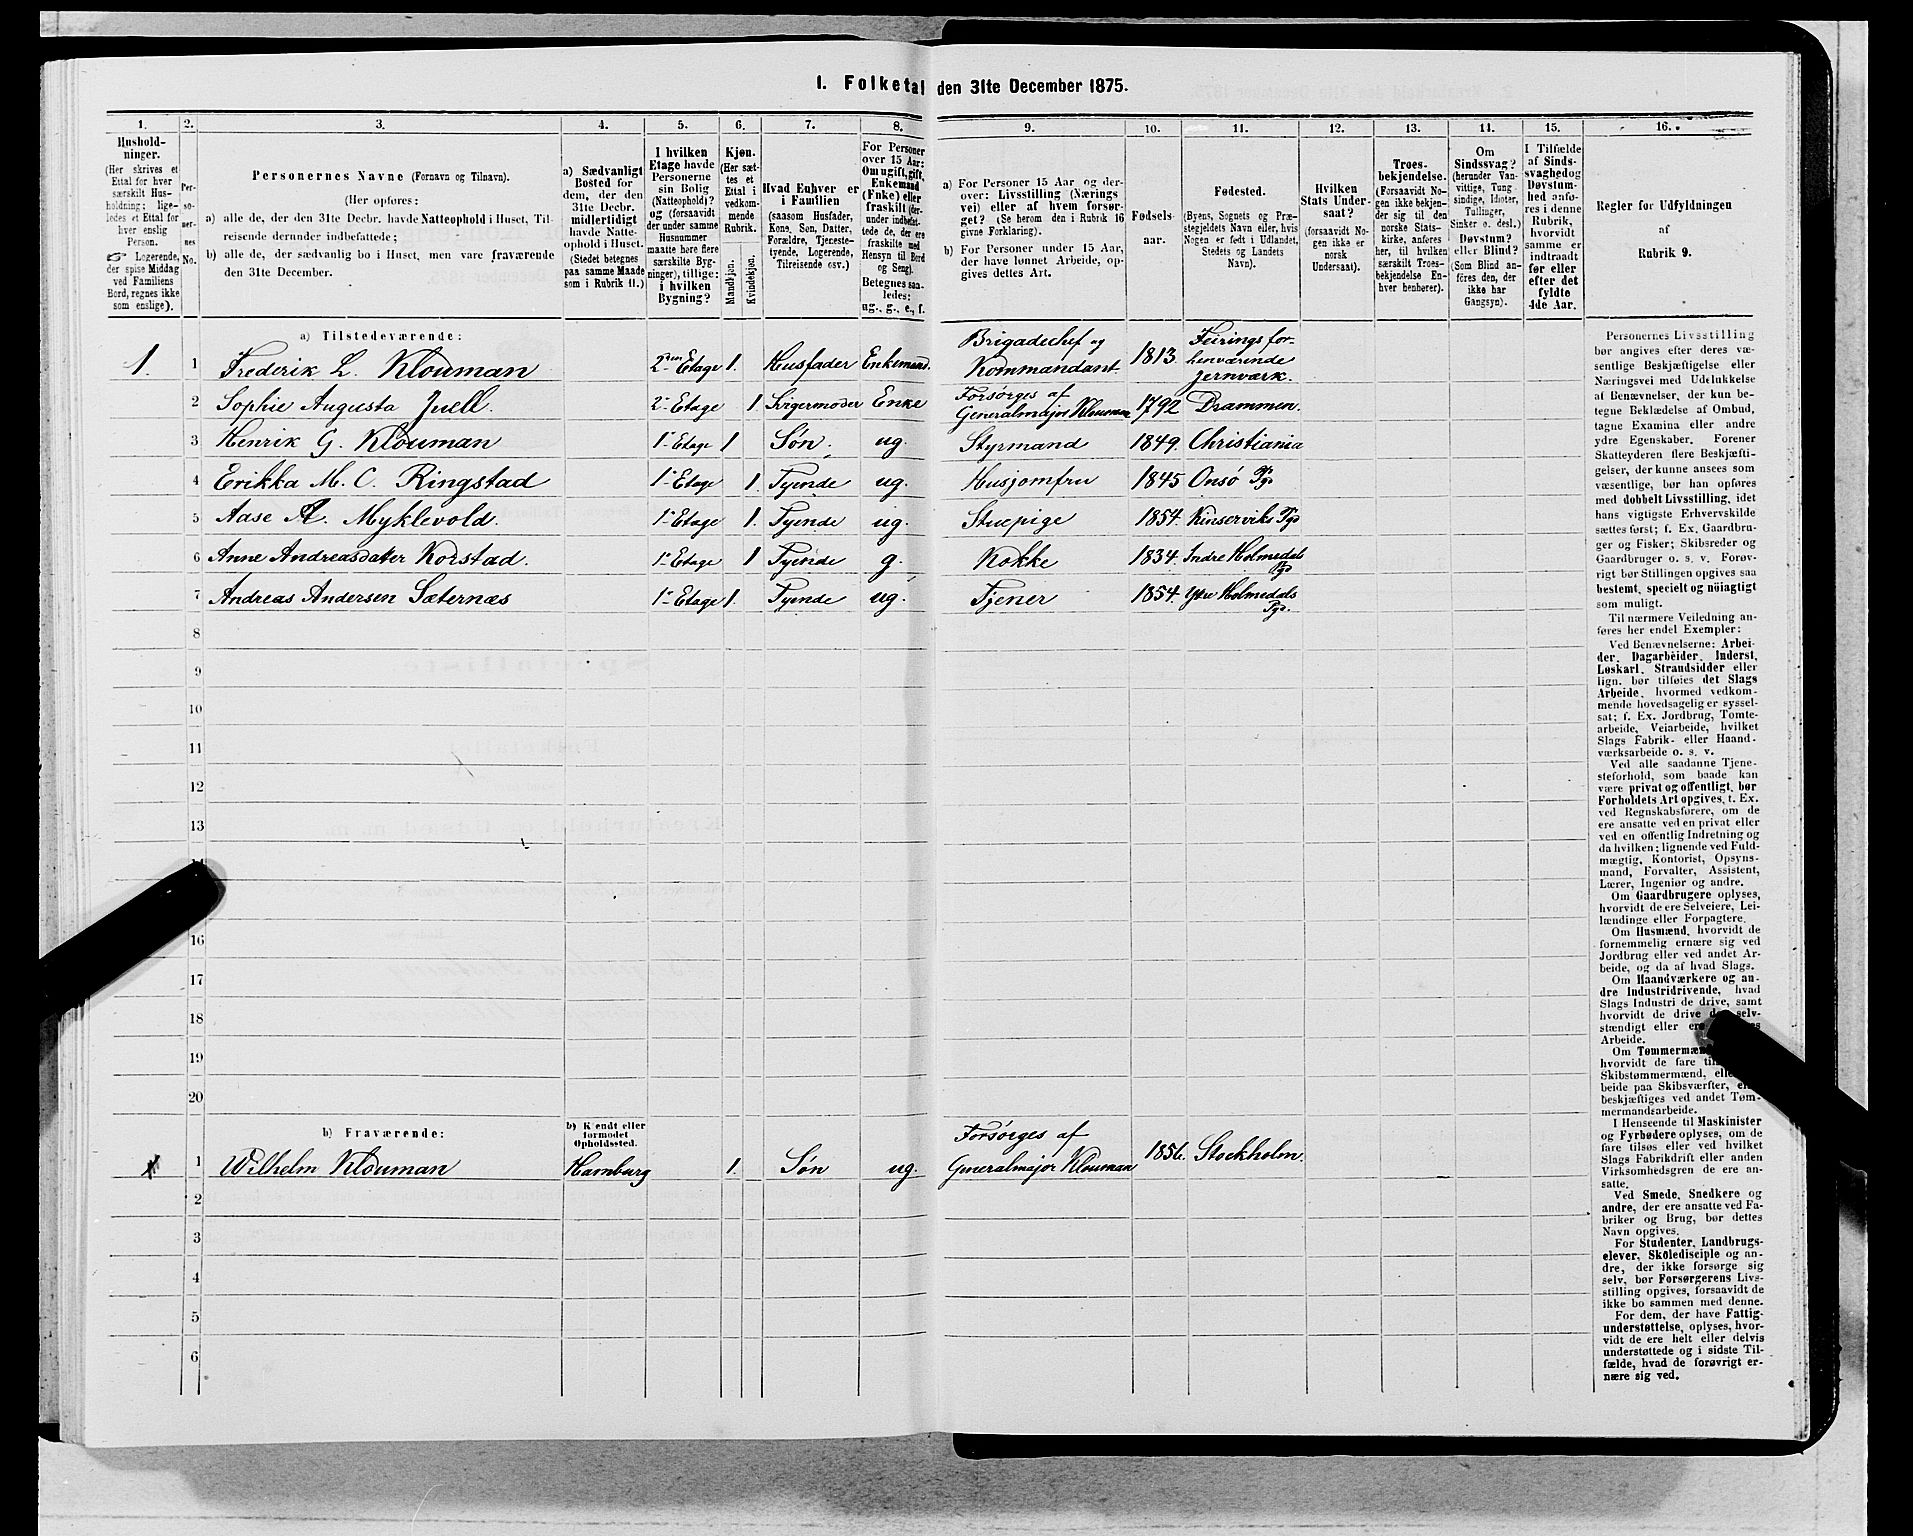 1. Folketal den 31te December 1875.
1. 2. 3. 4. 5. 6. 7. 8. 9. 10. 11. 12. 13. 14. 15. 16.
Hushold-
ninger.
(Her skrives et
Ettal for hver
særskilt Hus-
holdning; lige-
ledes et Ettal for
hver enslig
Person.
☞ Logerende,
der spise Middag
ved Familiens
Bord, regnes ikke
som enslige).
Per-
so-
ner-
nes
No.
Personernes Navne (Fornavn og Tilnavn).
(Her opføres:
a) alle de, der den 31te Decbr. havde Natteophold i Huset, Til-
reisende derunder indbefattede;
b) alle de, der sædvanlig bo i Huset, men vare fraværende
den 31te December.
a) Sædvanligt
Bosted for
dem, der den
31te Decbr.
midlertidigt
havde Natte-
ophold i Huset.
(Stedet betegnes
paa samme Maade
som i Rubrik 11.)
I hvilken
Etage havde
Personerne
sin Bolig
(Natteophold)?
og (forsaavidt
der under samme
Husnummer
maatte høre flere
særskilte Byg-
ninger), tillige:
i hvilken
Bygning?
Kjøn.
(Her sæt-
tes et
Ettal i
vedkom-
mende
Rubrik.
Mandkjøn.
Kvindekjøn.
Hvad Enhver er
i Familien
(saasom Husfader,
Kone, Søn, Datter,
Forældre, Tjeneste-
tyende, Logerende,
Tilreisende osv.)
For Personer
over 15 Aar:
Om ugift, gift,
Enkemand
(Enke) eller
fraskilt (der-
under indbefat-
tede de, der ere
fraskilte med
Hensyn til Bord
og Seng).
Betegnes saa-
ledes:
ug., g., e., f.
a) For Personer 15 Aar og der-
over: Livsstilling (Nærings
vei) eller af hvem forsør-
get? (Se herom den i Rubrik 16
givne Forklaring).
b) For Personer under 15 Aar,
der have lønnet Arbeide, op-
gives dettes Art.
Fødsels-
aar.
Fødested.
(Byens, Sognets og Præ-
stegjeldets Navn eller, hvis
Nogen er født i Udlandet,
Stedets og Landets
Navn).
Hvilken
Stats Under-
saat?
(forsaavidt No-
gen ikke er
norsk
Undersaat).
Troes-
bekjendelse.
(Forsaavidt No-
gen ikke bekjen-
der sig til den
norske Stats-
kirke, anføres
her, til hvilken
særskilt Troes-
bekjendelse En-
hver henhører).
Om
Sindssvag?
(herunder Van-
vittige, Tung-
sindige, Idioter,
Tullinger,
Sinker o. desl.)
Døvstum?
eller Blind?
(Som Blind an-
føres den, der
ikke har
Gangsyn).
I Tilfælde
af Sinds-
svaghed og
Døvstum-
hed anfø-
res i denne
Rubrik,
hvorvidt
samme er
indtraadt
før eller
efter det
fyldte
4de Aar.
Regler for Udfyldningen
af
Rubrik 9.
a) Tilstedeværende:
1. 1 Frederik L. Klouman 2den Etage 1. Husfader Enkemand. Brigadechef og Kommandant 1813. Feirings for-
henværende
jernværk.
2 Sophie Augusta Juell. 2. Etage 1. Svigermoder Enke Forsørges af Generalmajor Klouman 1792 Drammen.
3 Henrik G. Klouman 1. Etage 1 Søn. ug. Styrmand 1849. Christiania
4 Erikka M. C. Ringstad 1. Etage 1. Tyende ug. Husjomfru 1845 Onsö Pgd
5 Aase A. Myklevold. 1. Etage 1. Tyende ug. Stuepige 1854. Kinserviks Pgd
6 Anne Andreasdatter Korstad. 1. Etage 1 Tyende g. Kokke 1834. Indre Holmedals Pgd
7 Andreas Andersen Sæternæs 1. Etage 1. Tyende ug. Tjener 1854. Ytre Holmedals Pgd.
8
9
10
11
12
13
16
17
18
19
20
b) Fraværende:
b) Kjendt eller
formodet
Opholdssted.
1 Wilhelm Klouman Hamburg 1. Søn ug. Forsørges af Generalmajor Klouman 1856. Stockholm.
2
3
4
5
6
Personernes Livsstilling
bør angives efter deres væ-
sentlige Beskjæftigelse eller
Næringsvei med Udelukkelse
af Benævnelser, der kun be-
tegne Beklædelse af Ombud,
tagne Examina eller andre
ydre Egenskaber. Forener
Skatteyderen flere Beskjæfti-
gelser, der kunne ansees som
væsentlige, bør han opføres
med dobbelt Livsstilling, idet
hans vigtigste Erhvervskilde
sættes først; f. Ex. Gaardbru-
ger og Fisker; Skibsreder og
Gaardbruger o. s. v. Forøv-
rigt bør Stillingen opgives saa
bestemt, specielt og nöiagtigt
som muligt.
Til nærmere Veiledning an-
føres her endel Exempler:
Ved Benævnelserne: Arbei-
der, Dagarbeider, Inderst,
Løskarl, Strandsidder eller
lign. bør tilføies det Slags
Arbeide, hvormed vedkom-
mende hovedsagelig er syssel-
sat; f. Ex. Jordbrug, Tomte-
arbeide, Veiarbeide, hvilket
Slags Fabrik- eller Haand-
værksarbeide o. s. v.
Ved alle saadanne Tjene-
steforhold, som baade kan
være privat og offentligt, bør
Forholdets Art opgives, t. Ex.
ved Regnskabsførere, om de
ere ansatte ved en privat eller
ved en offentlig Indretning og
da hvilken; lignende ved Fuld-
mægtig, Kontorist, Opsyns-
mand, Forvalter, Assistent,
Lærer, Ingeniør og andre.
Om Gaardbrugere oplyses,
hvorvidt de ere Selveiere, Lei-
lændinge eller Forpagtere.
Om Husmænd, hvorvidt de
fornemmelig ernære sig ved
Jordbrug eller ved andet Ar-
beide, og da af hvad Slags.
Om Haandværkere og an-
dre Industridrivende, hvad
Slags Industri de drive, samt
hvorvidt de drive selv-
stændigt eller
Arbeide.
Om
hvorvidt de fare
Skibstømmermænd,
beide paa Skibsværfter,
beskjæftiges ved andet Tøm-
mermandsarbeide.
I Henseende til Maskinister
og Fyrbødere oplyses, om de
fare tilsøs eller ved hvilket
Slags Fabrikdrift eller anden
Virksomhedsgren de ere an-
satte.
Ved Smede, Snedkere og
andre, der ere ansatte ved Fa-
briker og Brug, bør dettes
Navn opgives.
For Studenter, Landbrugs-
elever, Skoledisciple og an-
dre, der ikke forsørge sig
selv, bør Forsørgerens Livs-
stilling opgives, forsaavidt de
ikke bo sammen med denne.
For dem, der have Fattig-
understøttelse, oplyses, hvor-
vidt de ere helt eller delvis
understøttede og i sidste Til-
fælde, hvad de forøvrigt er-
nære sig ved.